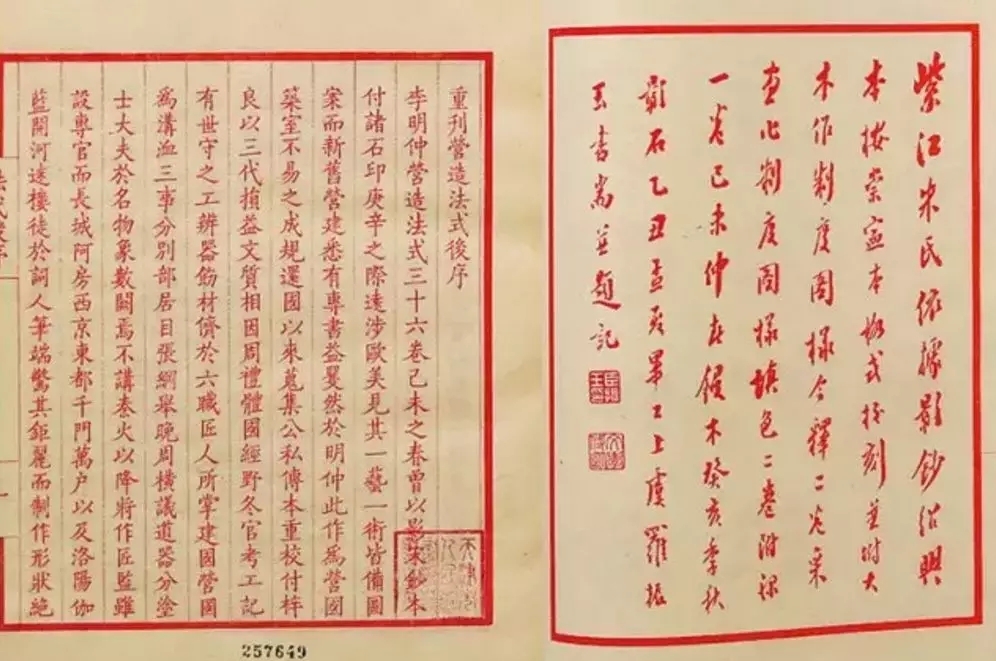 紫江朱氏依據影鈔紹興
本按崇寧本格式校刻並附大
木作制度圖樣今釋二卷采
畫作制度圖樣填色二卷附錄
一卷己未仲春鋟木癸亥季秋
影石乙丑孟夏畢工上虞羅振
玉書耑並題記
重刊營造法式後序
李明仲營造法式三十六卷己未之春曾以影宋鈔本
付諸石印庚辛之際遠涉歐美見其一藝一術皆備圖
案而新舊營建悉有專書益矍然於明仲此作為營國
築室不易之成規還國以來蒐集公私傳本重校付梓
良以三代損益文質相因周禮體國經野冬官考工記
有世守之工辨器飭材儕於六職匠人所掌建國營國
為溝洫三事分別部居目張綱舉晚周橫議道器分塗
士大夫於名物象數闕焉不講秦火以降將作匠監雖
設專官而長城阿房西京東都千門萬户以及洛陽伽
藍開河迷樓徒於詞人筆端驚其鉅麗而制作形狀絕
257649